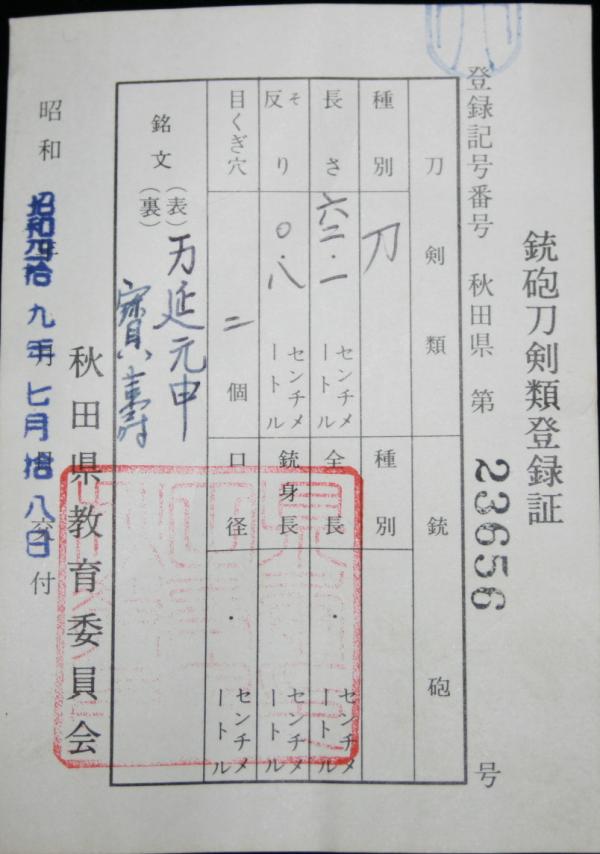 銃砲刀剣類登録証
登録記号番号 秋田県 第 23656 号
刀剣類 銃砲
種別 刀 種別
長さ 六二・一 センチメートル 全長 ・ センチメートル
反り そり 〇・八 センチメートル 銃身長 センチメートル
目くぎ穴 二 個 口径 ・ センチメートル
銘文 (表) 万延元申
(裏) 寳壽
秋田県教育委員会
昭和 昭和四拾九年七月拾八日 交付